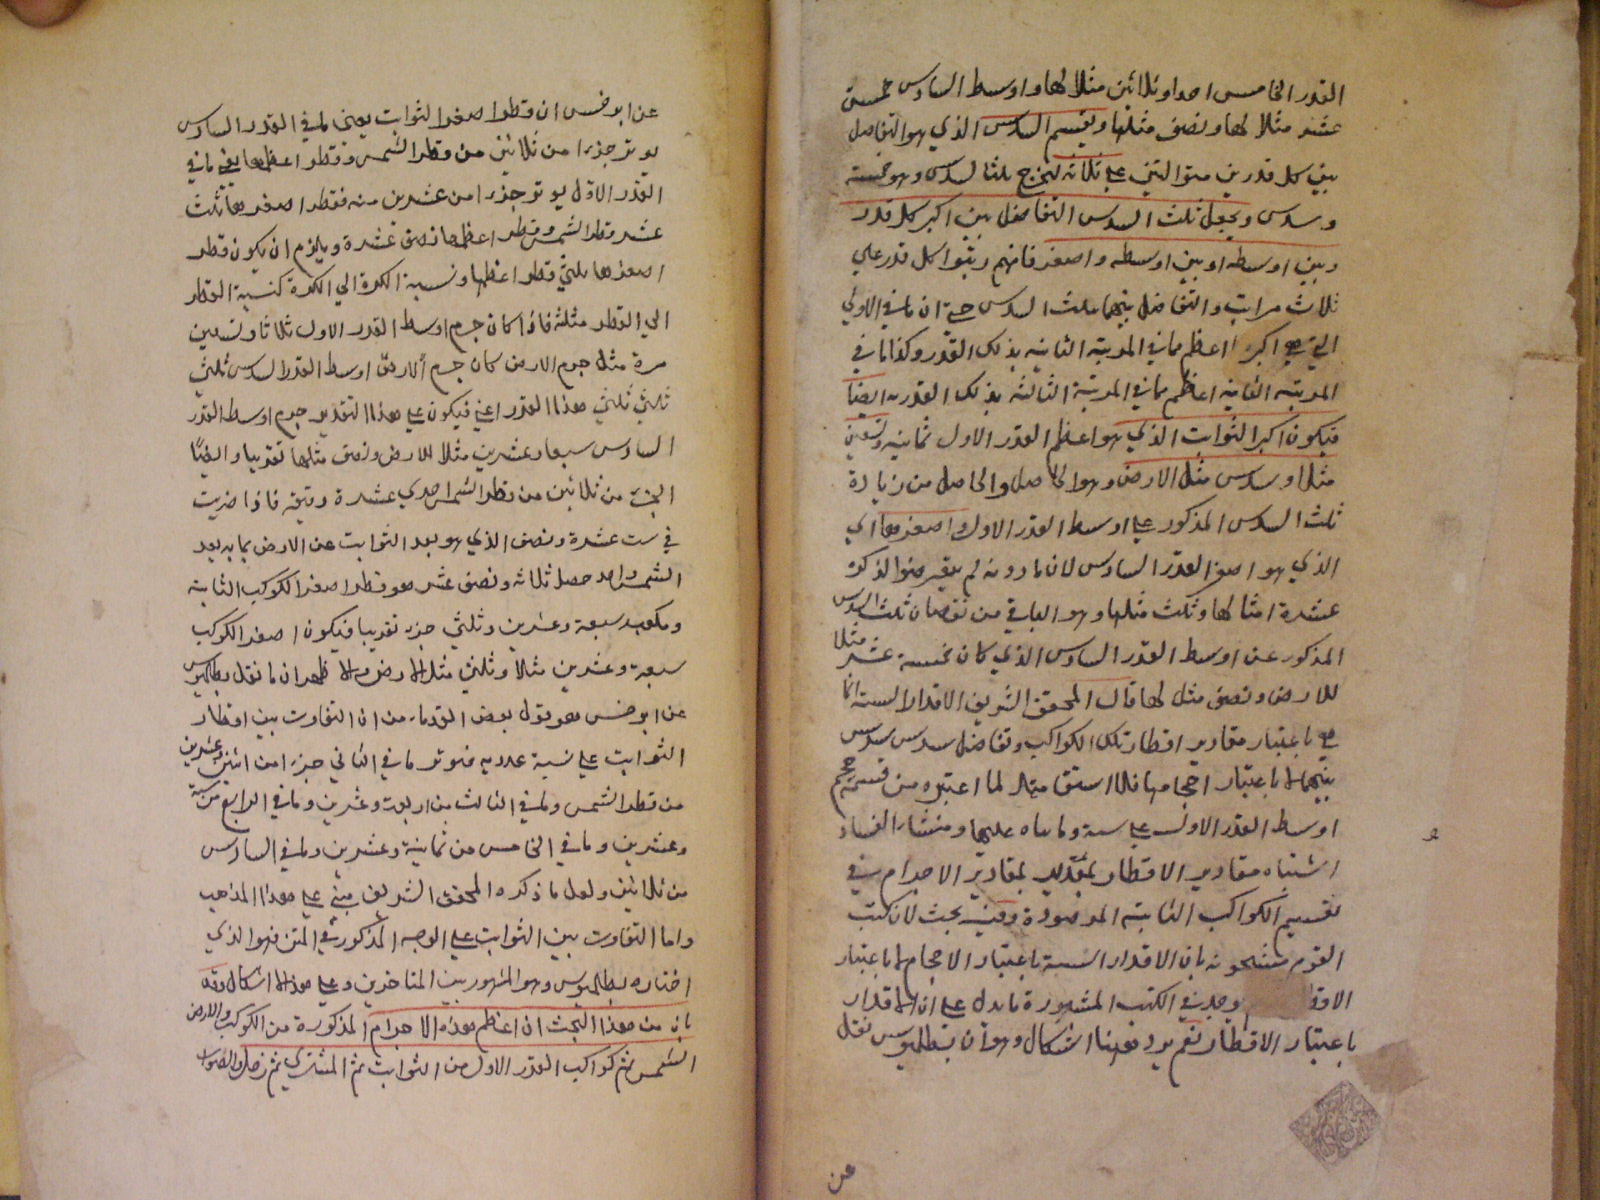 القدر الخامس احدا وثلاثين مثلا لها واوسط السادس خمسة
عشر مثلا لها ونصف مثلها ويقسم السدس الذي هو التفاضل
بين كل قدرين متواليين على ثلاثة ليخرج ثلث السدس وهو خمسة
وسدس ويجعل ثلث السدس التفاضل بين اكبر كل قدر
وبين اوسطه او بين اوسطه واصغر فانهم رتبوا كل قدر على
ثلاث مراتب والتفاضل بينهما بثلث السدس حتى ان ما في الاولى
التي هي اكبر اعظم مما في المرتبة الثانية بذلك القدر وكذا ما في
المرتبة الثانية اعظم مما في المرتبة الثالثة بذلك القدر ايضا
فيكون اكبر الثوابت الذي هو اعظم القدر الاول ثمانية وتسعين
مثلا وسدس مثل الارض وهو الحاصل والحاصل من زيادة
ثلث السدس المذكور على اوسط القدر الاول واصغرها اي
الذي هو اصغر القدر السادس لان ما دونه لم يعتبر
عشرة امثالها وثلث مثلها وهو الباقي من نقصان ثلث السدس
المذكور عن اوسط القدر السادس الذي كان خمسة عشر مثلا
للارض ونصف مثل لها قال المحقق الشريف الاقدار الستة انما
هي باعتبار مقادير اقطار تلك الكواكب وتفاضل سدس سدس
بينهما لا باعتبار احجامها فلا استقامة لما اعتبره من قسمة حجم
اوسط القدر الاول على ستة وما بناه عليها ومنشاء الفساد
اشتباه مقادير الاقطار بمقادير الاجرام في
تقسيم الكواكب الثابتة المرصودة وفيه بحث لان كتب
القوم مشحونة بان الاقدار الستة باعتبار الاحجام لا باعتبار
وجد في الكتب المشهورة ما يدل على ان الاقدار
باعتبار الاقطار نعم يرد ههنا اشكال وهو ان بطلميوس نقل
عن
عن ابرخس ان قطر اصغر الثوابت يعني ما في القدر السادس
يوتر جزءا من ثلاثين من قطر الشمس وقطر اعظمها يعني ما في
القدر الاول يوتر جزءا من عشرين منه فقطر اصغرها ثلث
عشر قطر الشمس وقطر اعظمها نصف عشرة ويلزم ان يكون قطر
اصغرها ثلثي قطر اعظمها ونسبة الكرة الى الكرة كنسبة القطر
الى القطر مثلثة فاذا كان جرم اوسط القدر الاول ثلاثا وتسعين
مرة مثل جرم الارض كان جرم اوسط القدر السادس ثلثي
ثلثي ثلثي هذا القدر اعني فيكون على هذا التقدير جرم اوسط القدر
السادس سبعا وعشرين مثلا للارض ونصف مثلها تقريبا وايضا
الجزء من ثلاثين من قطر الشمس احدى عشرة دقيقة فاذا ضربت
في ست عشرة ونصف الذي هو بعد الثوابت عن الارض بما به بعد
الشمس واحد حصل ثلاثة ونصف عشر هو قطر اصغر الكواكب الثابتة
ومكعبه سبعة وعشرين وثلثي جزء تقريبا فيكون اصغر الكواكب
سبعة وعشرين مثلا وثلثي مثل الارض ظهر ان ما نقل بطلميوس
عن ابرخس هو قول بعض القدماء من ان التفاوت بين اقطار
الثوابت على نسبة عددية فيوتر ما في الثاني جزء من اثنين وعشرين
من قطر الشمس وما في الثالث من اربعة وعشرين وما في الرابع من ستة
وعشرين وما في الخامس من ثمانية وعشرين وما في السادس
من ثلاثين ولعل ما ذكره المحقق الشريف مبني على هذا المذهب
واما التفاوت بين الثوابت على الوجه المذكور في المتن فهو الذي
اختاره بطلميوس وهو المشهور بين المتاخرين وعلى هذا لا اشكال وقد
بان من هذا البحث ان اعظم هذه الاجرام المذكورة من الكواكب والارض
الشمس ثم كواكب القدر الاول من الثوابت ثم المشتري ثم زحل